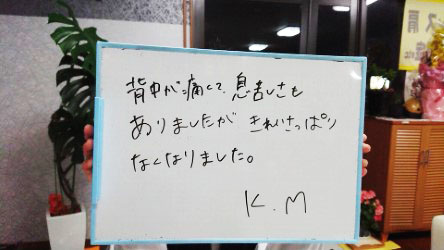 背中が痛くて、息苦しさも
ありましたが きれいさっぱり
なくなりました。
K.M